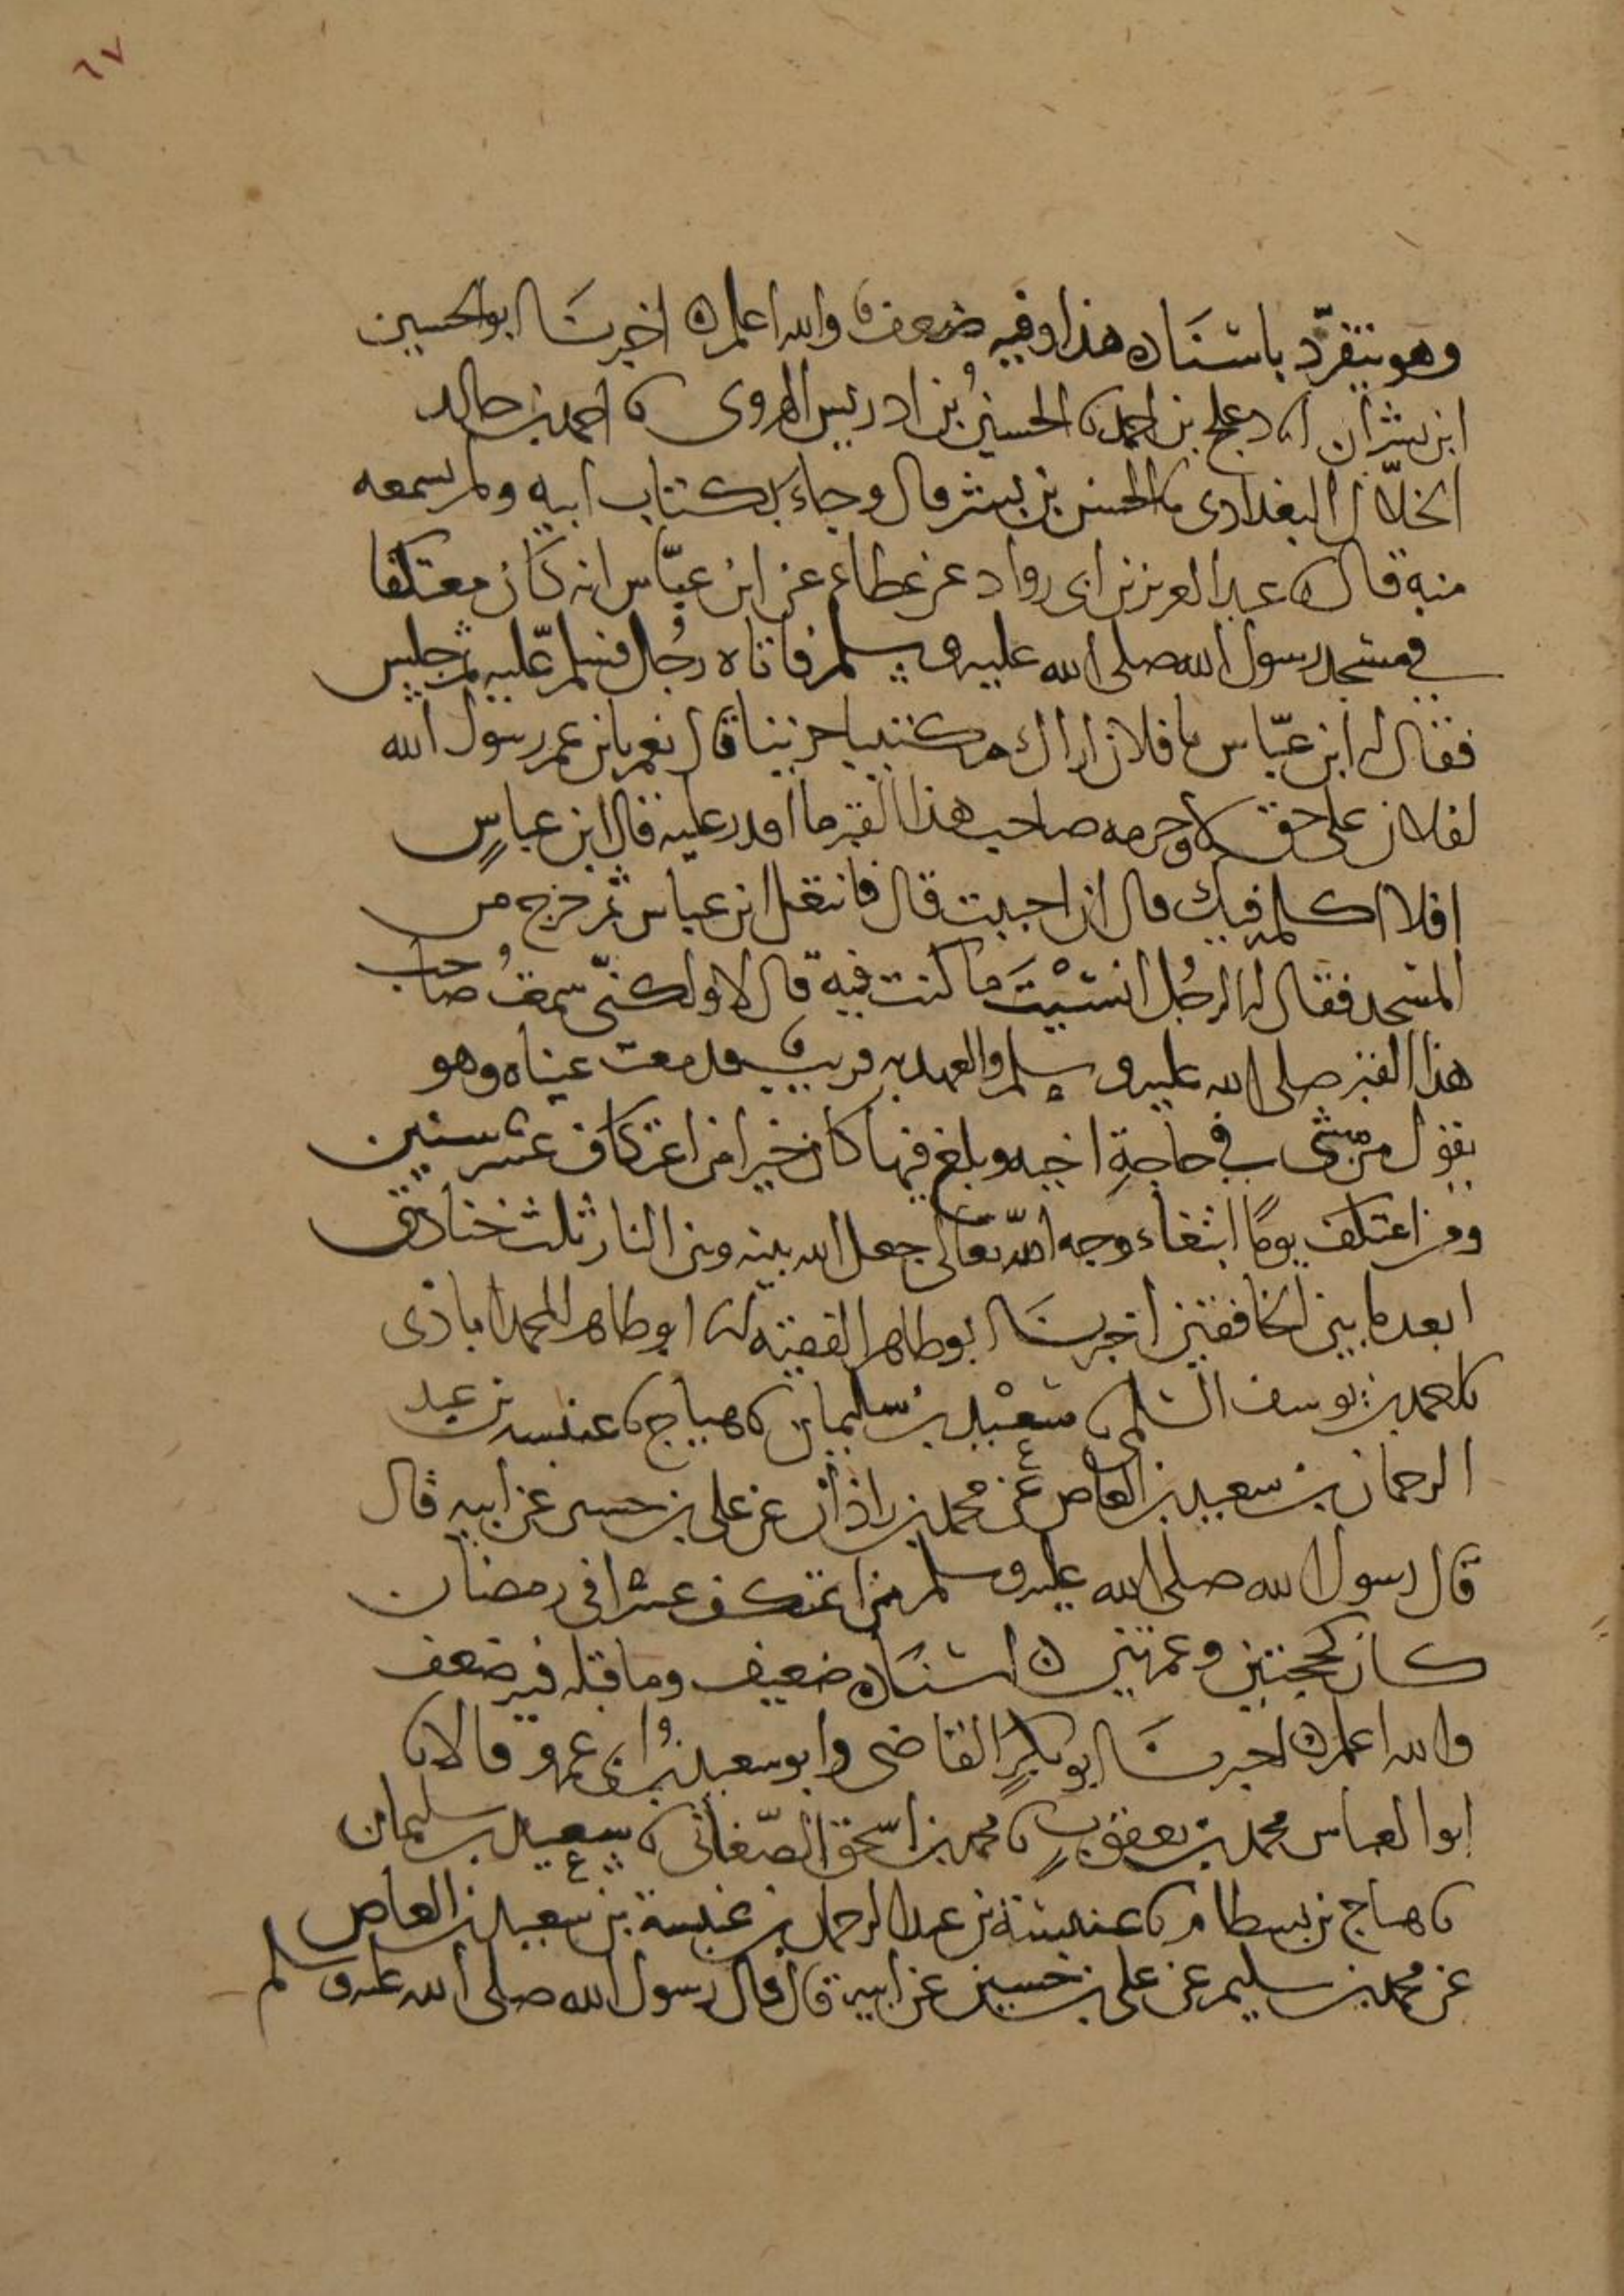 ٦٧
وهو يتفرّد باسنَاده هذا وفيه ضعف والله اعلم ه اخبرنَا ابو الحسين
ابن بشران انا دعلج بن احمد نا الحسينُ بن ادريس الهروي نا احمد بن خالد
الخلّال البغدادي نا الحسن بن بشر قال وجاء بكتاب ابيه ولم يسمعه
منه قال نا عبد العزيز بن ابي رواد عن عطاء عن ابن عبّاس انه كان معتكفا
في مسجد رسول الله صلى الله عليه وسلم فاتاه رجُل فسلم عليه ثم جلس
فقال له ابن عبّاس يا فلان اراك مكتئبا حزينا قال نعم يابن عم رسول الله
لفلان علي حق لا وحرمه صاحب هذا القبر ما اقدر عليه قال ابن عباسٍ
افلا اكلمه فيك قال ان احببت قال فانتعل ابن عباس ثم خرج من
المسجد فقال له الرجُل انسْيتَ ما كنت فيه قال لا ولكنّي سمعتُ صاحب
هذا القبر صلى الله عليه وسلم والعهد به قريب فدمعت عيناه وهو
يقول من مشى في حاجةِ اخيه وبلغ فيها كان خيرا من اعتكاف عشر سنين
ومن اعتكف يومًا ابتغاء وجه الله تعالى جعل الله بينه وبين النار ثلث خنادق
ابعد ما بين الخافقين اخبرنَا ابو طاهر الفقيه انا ابو طاهر المحمداباذي
نا احمد بن يوسف السلمي نا سعيْد بن سليمان نا هياج نا عنبسه بن عبد
الرحمان بن سعيد بن العاص عن محمد بن زاذان عن علي بن حسين عن ابيه قال
قال رسول الله صلى الله عليه وسلم من اعتكف عشرا في رمضان
كان كحجتين وعمرتين ه اسنَاده ضعيف وما قبله فيه ضعف
والله اعلم ه اخبرنَا ابو بكرٍ القاضي وابو سعيد بنُ ابي عمرو قالا نا
ابو العباس محمد بن يعقوب نا محمد بن اسحق الصّغاني نا سعيد بن سليمان
نا هياج بن بسطام نا عنبسة بن عبد الرحمان بن عنبسة بن سعيد بن العاص
عن محمد بن سليم عن علي بن حسين عن ابيه قال قال رسول الله صلى الله عليه وسلم